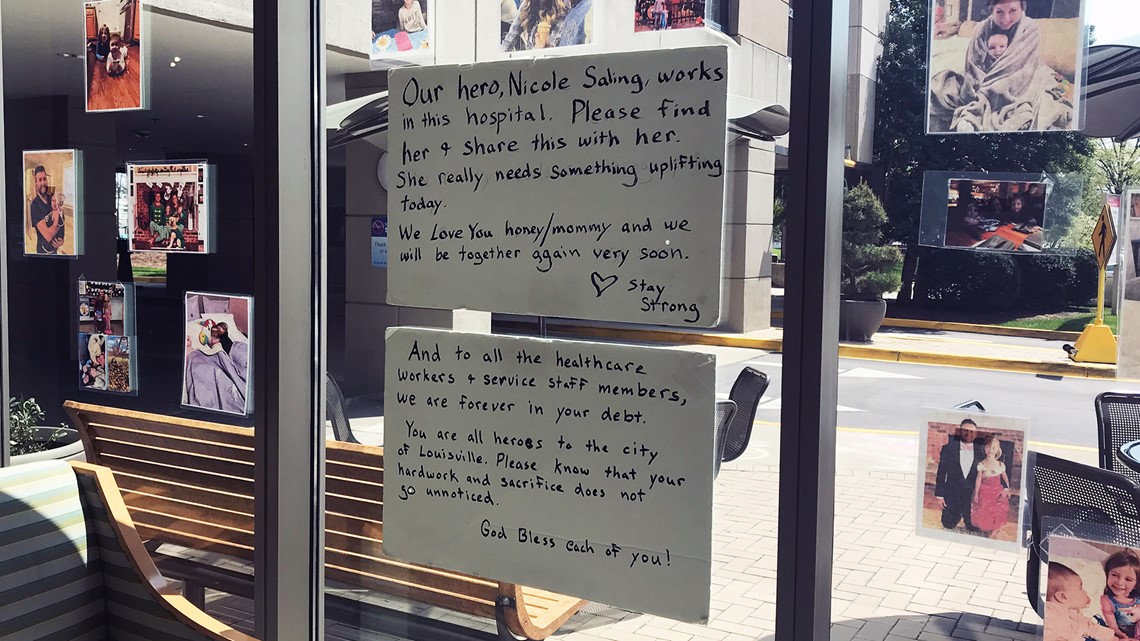 Our hero, Nicole Saling, works
in this hospital. Please find
her & share this with her.
She really needs something uplifting
today.
We Love You honey/mommy and we
will be together again very soon.
♡ Stay
Strong
And to all the healthcare
workers & service staff members,
we are forever in your debt.
You are all heroes to the city
of Louisville. Please know that your
hardwork and sacrifice does not
go unnoticed.
God Bless each of you!